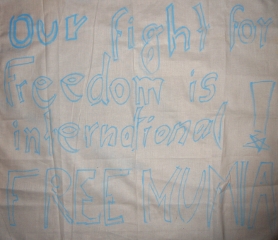 Our fight for
Freedom is
international !
FREE MUMIA